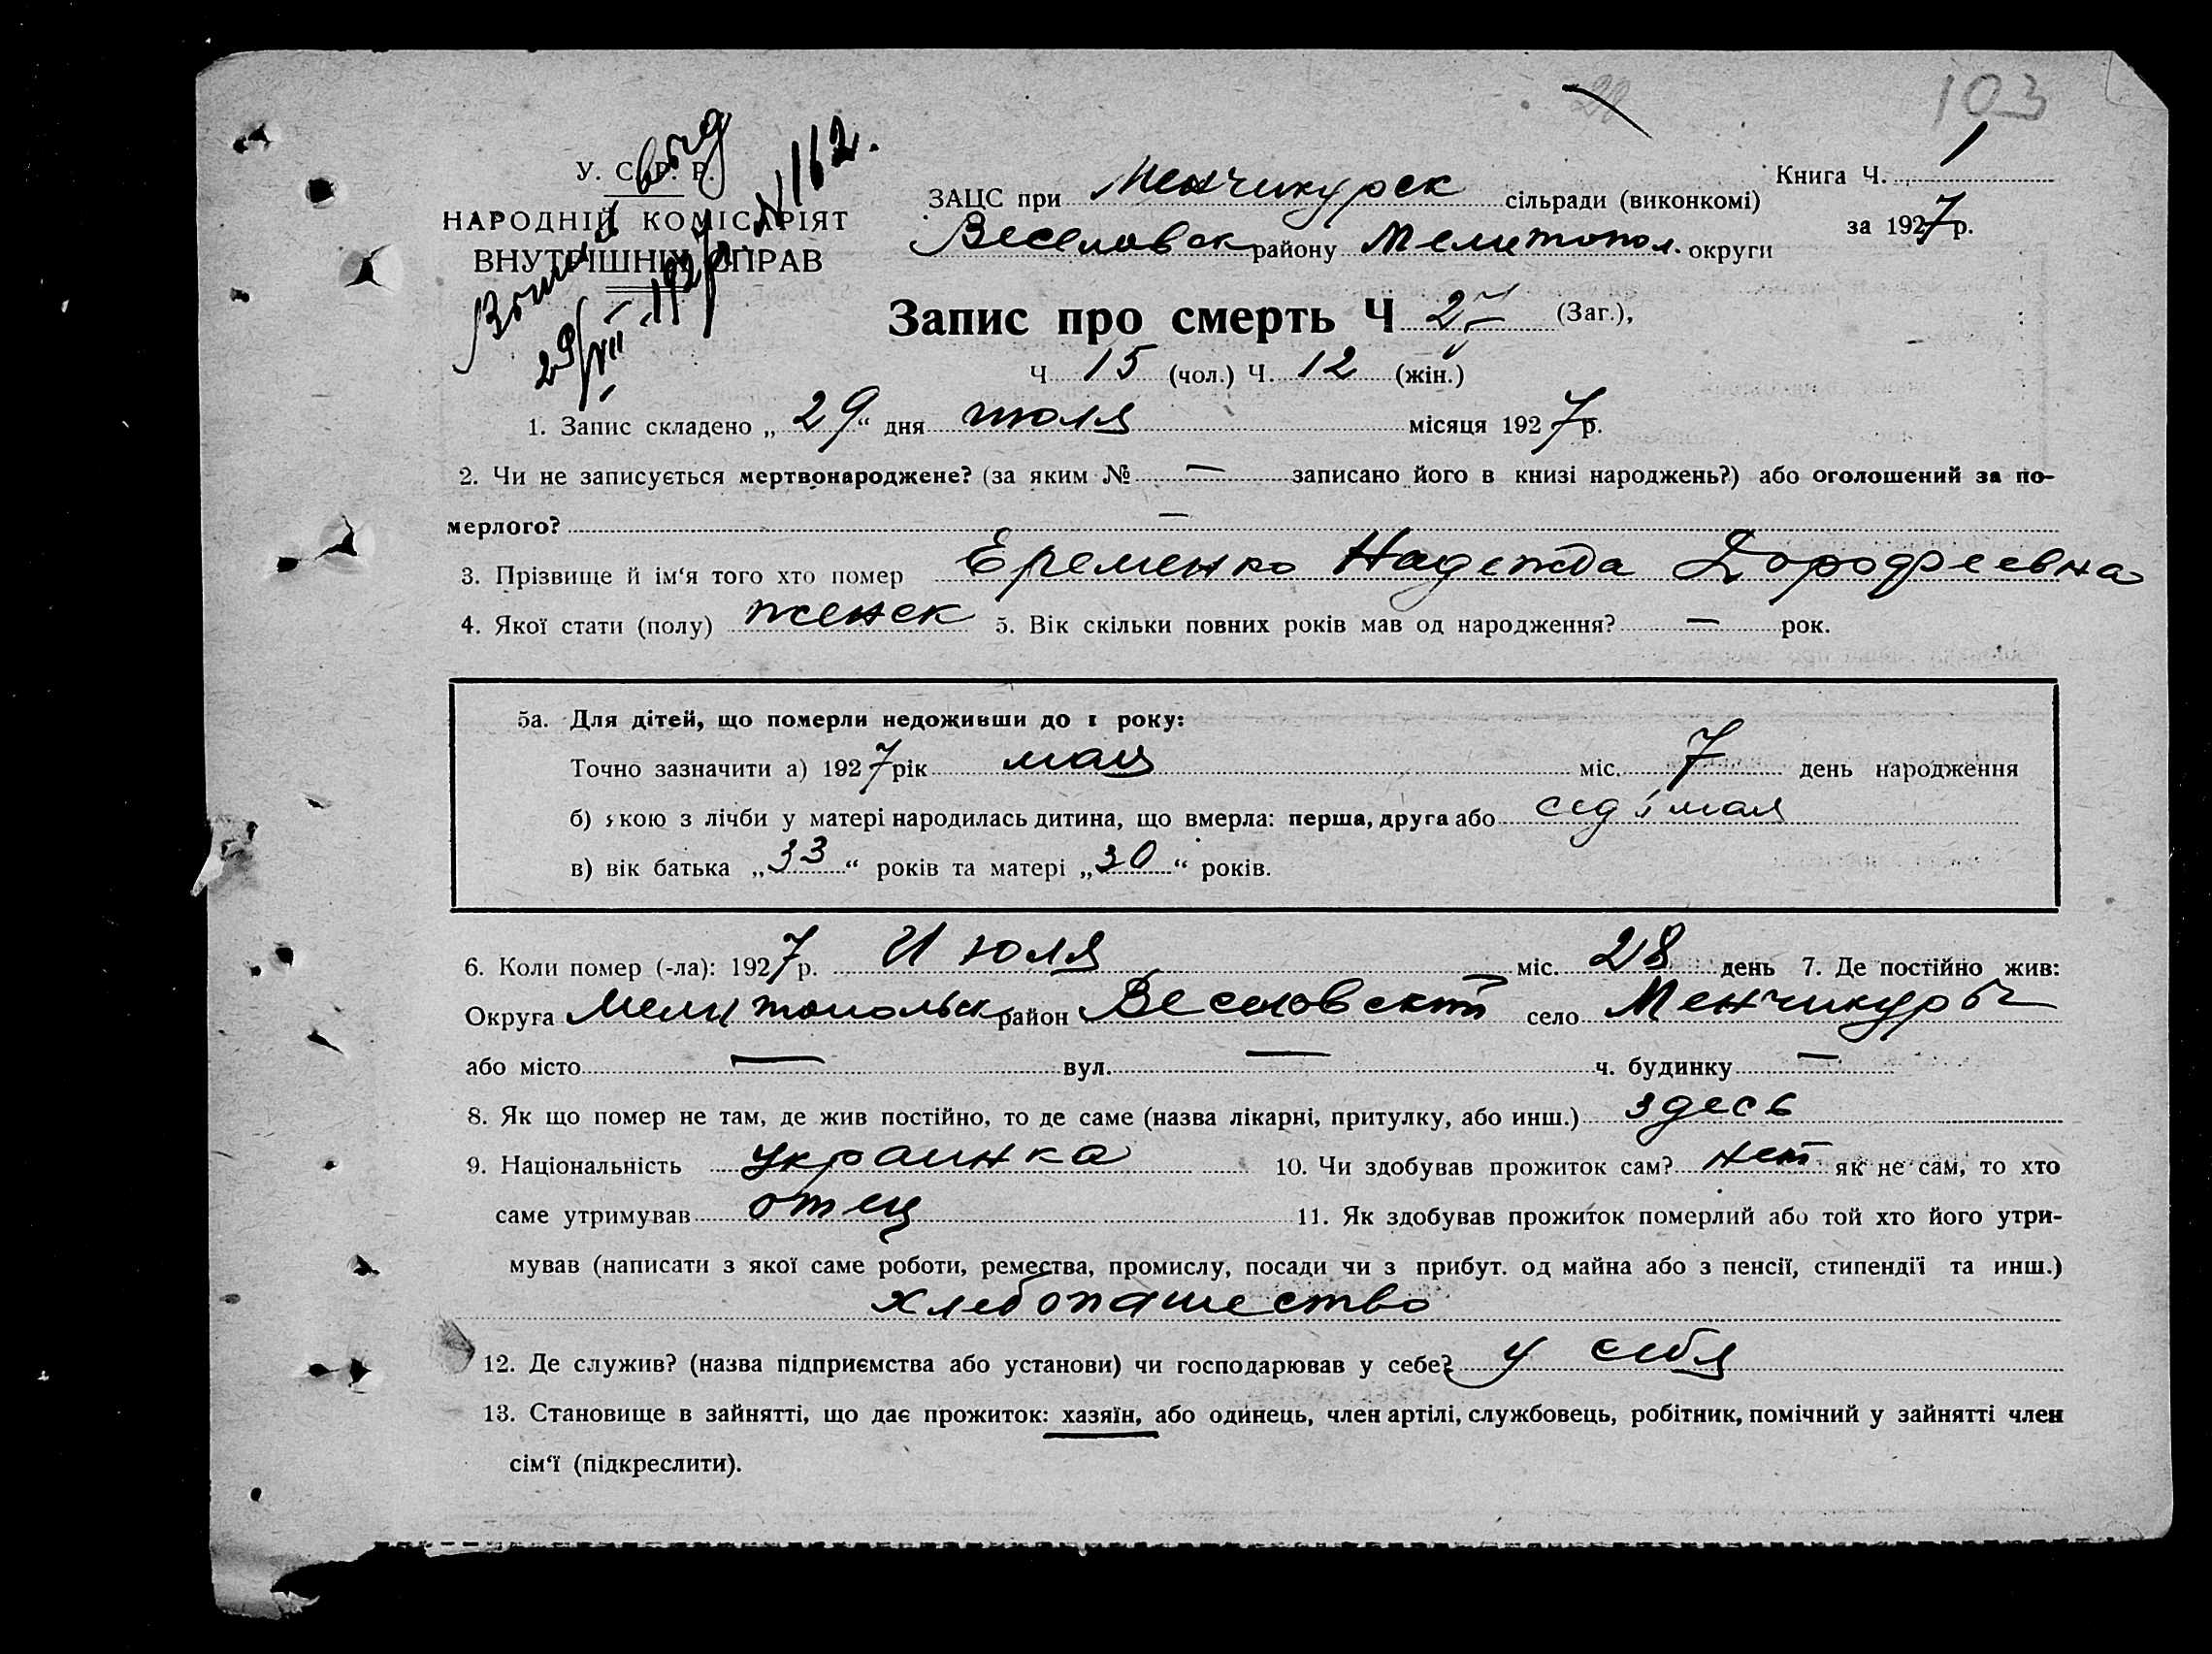 103
У. С. Р. Р.
НАРОДНІЙ КОМІСАРІЯТ
ВНУТРІШНІХ СПРАВ
выд
N 162.
29/VII - 1927 г.
Книга Ч. 1
за 1927 р.
ЗАЦС при Менчикурск сільради (виконкомі)
Веселовск району Мелитопол. округи
Запис про смерть Ч 27 (Заг.),
Ч 15 (чол.) Ч. 12 (жін.)
1. Запис складено „ 29 “ дня июля місяця 1927 р.
2. Чи не записується мертвонароджене? (за яким № — записано його в книзі народжень?) або оголошений за по-
мерлого? —
3. Прізвище й ім‘я того хто помер Еременко Надежда Дорофеевна
4. Якої стати (полу) женск 5. Вік скільки повних років мав од народження? — рок.
5а. Для дітей, що померли недоживши до 1 року:
Точно зазначити а) 1927 рік мая міс. 7 день народження
б) якою з лічби у матері народилась дитина, що вмерла: перша, друга або седьмая
в) вік батька „ 33 “ років та матері „ 30 “ років.
6. Коли помер (-ла): 1927 р. Июля міс. 28 день 7. Де постійно жив:
Округа Мелитопольск район Веселовский село Менчикуры
або місто — вул. — ч. будинку —
8. Як що помер не там, де жив постійно, то де саме (назва лікарні, притулку, або инш.) здесь
9. Національність украинка 10. Чи здобував прожиток сам? нет як не сам, то хто
саме утримував отец 11. Як здобував прожиток померлий або той хто його утри-
мував (написати з якої саме роботи, ремества, промислу, посади чи з прибут. од майна або з пенсії, стипендії та инш.)
хлебопашество
12. Де служив? (назва підприємства або установи) чи господарював у себе? у себя
13. Становище в зайнятті, що дає прожиток: хазяїн, або одинець, член артілі, службовець, робітник, помічний у зайнятті член
сім‘ї (підкреслити).